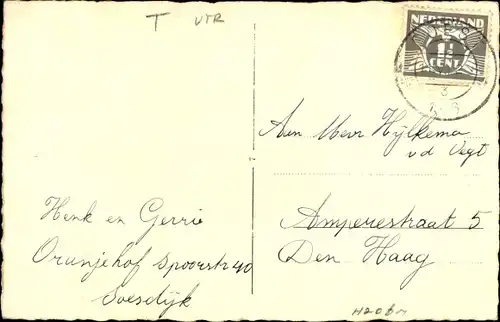 T UTR
NEDERLAND
1½
CENT
Aan Mevr Hylkema
v d Vegt
Henk en Gerrie
Oranjehof Spoorstr 40
Soesdijk
Amperestraat 5
Den Haag